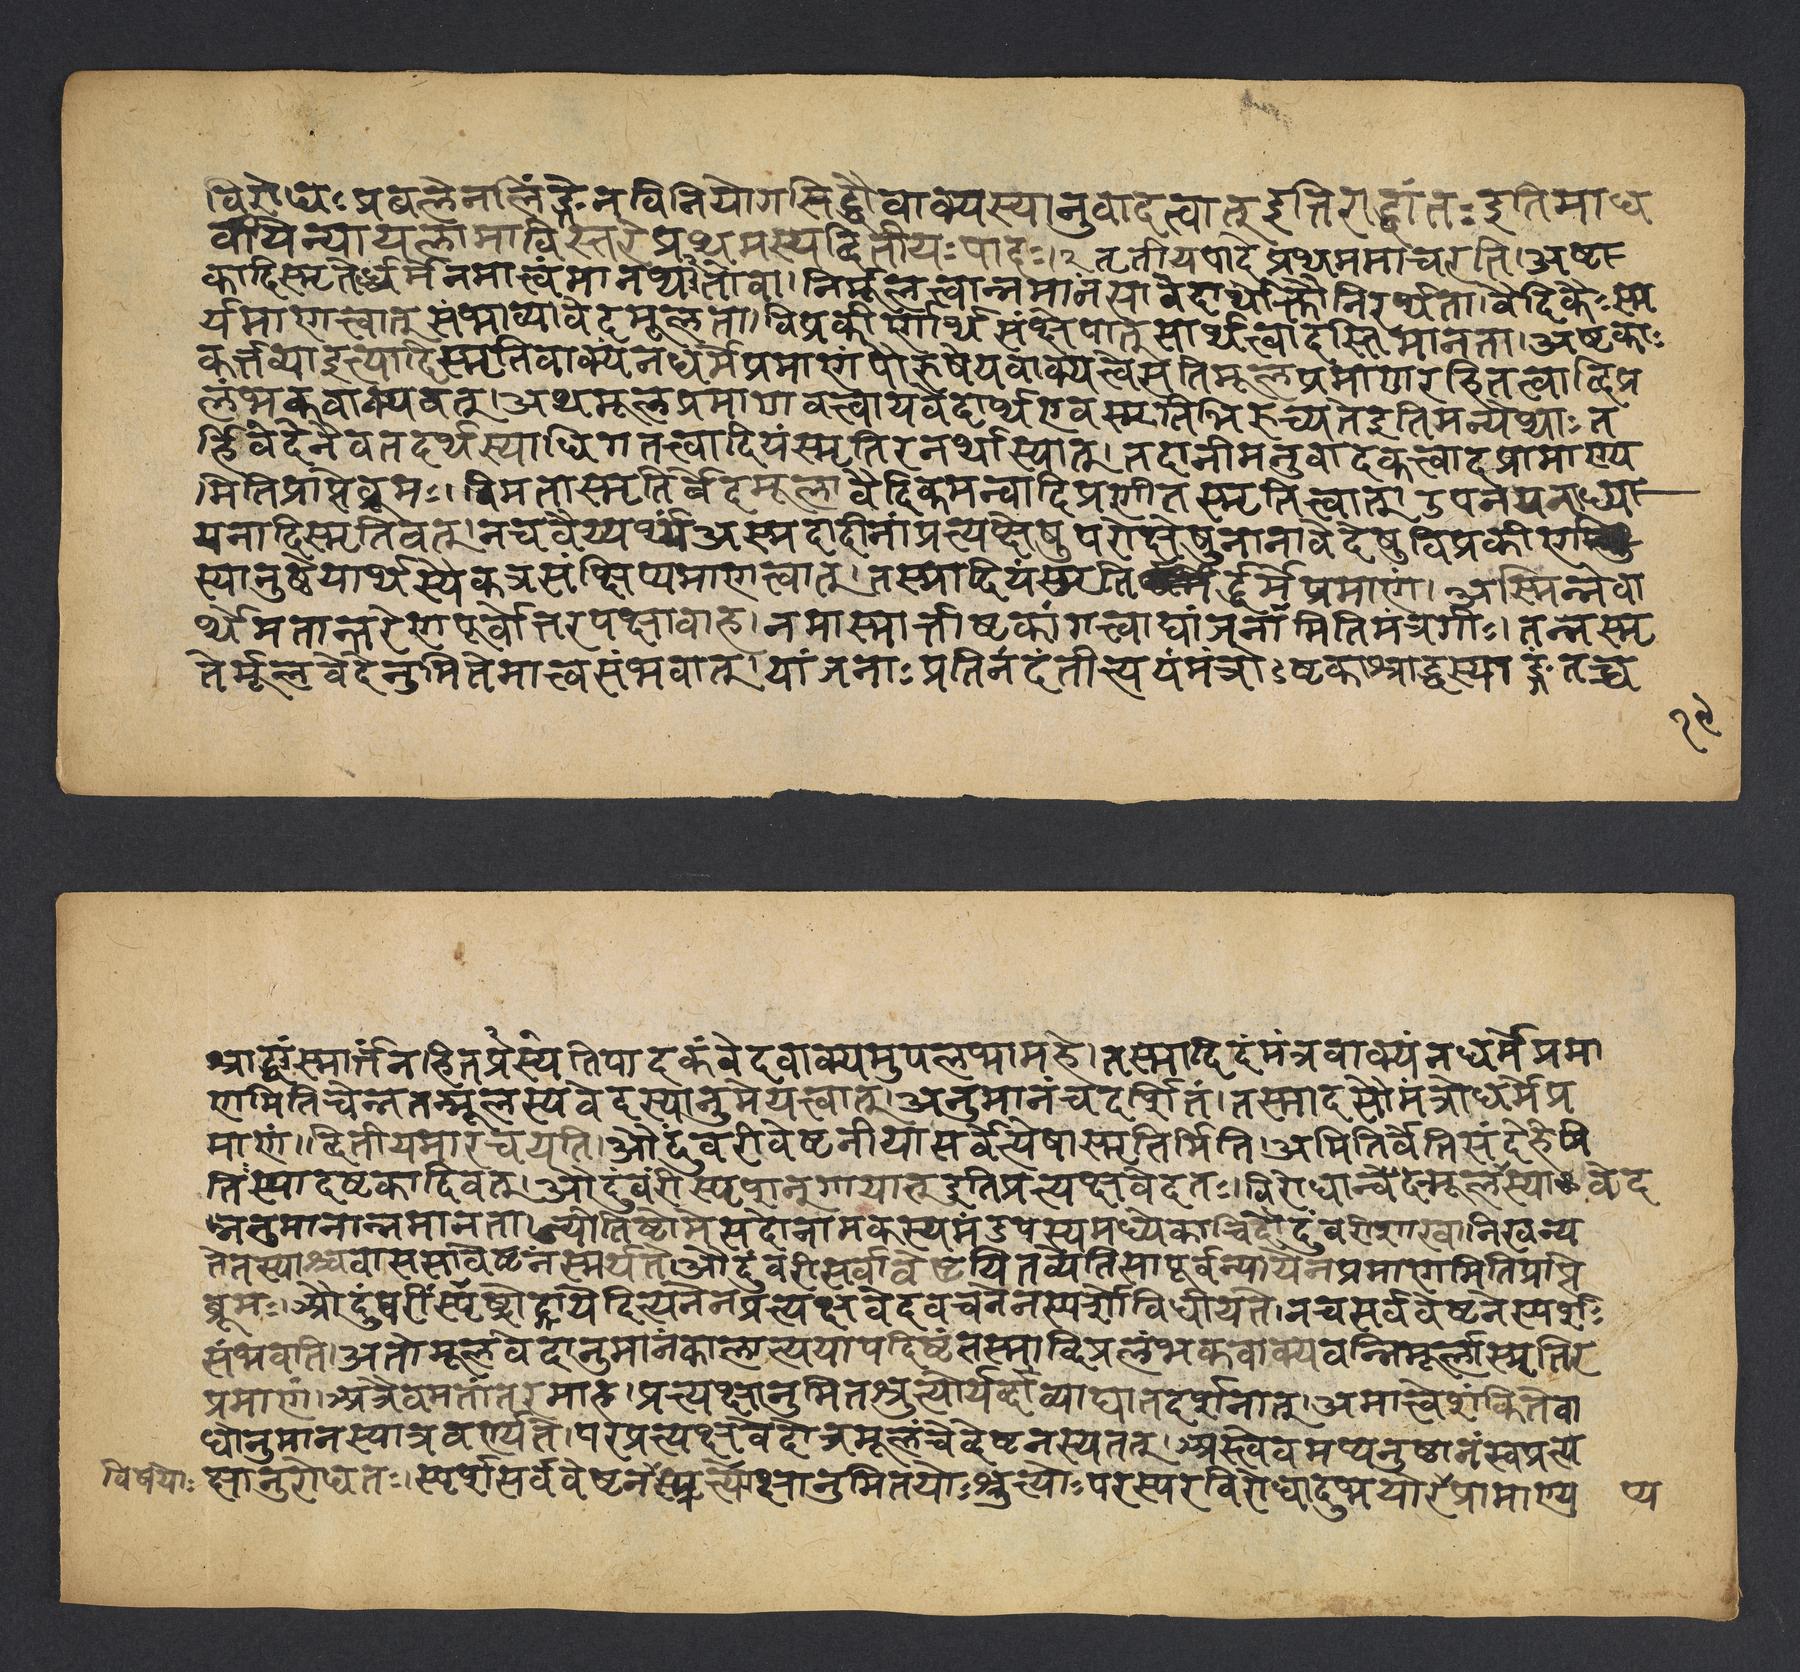 विरोधः प्रबलेनलिंङ्गेनविनियोगसिद्धौवाक्यस्यानुवादत्वात् इतिराद्धांतः इतिमाध
वीयेन्यायलामाविस्तरेप्रथमस्यद्वितीयःपादः।२ तृतीयपादेप्रथममाचरति।अष्टा
कादिस्मृतेर्धर्मेनमात्वंमानथ्यतोवा।निर्मूलत्वान्नमानंसावेदार्थोक्तौनिरर्थता।वैदिकैःस्म
र्यमाणत्वात् संभाव्यावेदमूलता।विप्रकीर्णार्थसंक्षेपात्सार्थत्वादस्तिमानता।अष्टकाः
कर्त्तव्याइत्यादिस्मृतिवाक्यंनधर्मेप्रमाणंपौरुषेयवाक्यत्वेसतिमूलप्रमाणरहितत्वाद्विप्र
लंभकवाक्यवत्।अथमूलप्रमाणवत्त्वायवेदार्थएवस्मृतिभिरुच्यतेइतिमन्येथाः त
र्हिवेदेनैवतदर्थस्याधिगतत्वादियंस्मृतिरनर्थास्यात्।तदानीमनुवादकत्वादप्रामाण्य
मितिप्राप्तेब्रूमः।विमतास्मृतिर्वेदमूलावैदिकमन्वादिप्रणीतस्मृतित्वात् उपनयनाध्या
यनादिस्मृतिवत्।नचवैय्यर्थ्यंअस्मदादीनांप्रत्यक्षेषुपरोक्षेषुनानावेदेषुविप्रकीर्ण
स्यानुष्ठेयार्थस्यैकत्रसंक्षिप्यमाणत्वात्।तस्मादियंस्मृतिर्द्धर्मेप्रमाणं।अस्मिन्नेवा
र्थेमतान्तरेणपूर्वोत्तरपक्षावाह।नमास्मार्त्ताष्टकांगत्वाद्यांजनांमितिमंत्रगीः।तन्नस्मृ
तेर्मूलवेदेनुमितेमात्वसंभवात्।यांजनाः प्रतिनंदंतीत्ययंमंत्रोऽष्टकाश्राद्धस्याङ्गंतच्च
१९
श्राद्धंस्मार्त्तंनहितप्रस्यतिपादकंवेदवाक्यमुपलभामहे।तस्मादिदंमंत्रवाक्यंनधर्मेप्रमा
णमितिचेन्नतन्मूलस्यवेदस्यानुमेयत्वात्।अनुमानंचदर्शितं।तस्मादसौमंत्रोधर्मेप्र
माणं।।द्वितीयमारचयति।औदुंवरीवेष्टनीयासर्वेत्येषास्मृतिर्मिति।अमितिर्वेतिसंदेहेमि
तिःस्यादष्टकादिवत्।औदुंवरींस्पृशन्गायेत् इतिप्रत्यक्षवेदतः।विरोधान्वेदमूलंस्या वेद
ननुमानान्नमानता।ज्योतिष्टोमेसदोनामकस्यमंडपस्यमध्येकाचिदौदुंवरीशाखानिखन्य
तेतस्याश्चवाससावेष्टनंस्मर्यते।औदुंवरीसर्वावेष्टयितव्येतिसापूर्वन्यायेनप्रमाणमितिप्राप्ते
ब्रूमः।औदुंवरींस्पृष्ट्वोद्गायेदित्यनेनप्रत्यक्षवेदवचनेनस्पर्शोविधीयते।नचसर्ववेष्टनेस्पर्शः
संभवति।अतोमूलवेदानुमानंकालात्ययापदिष्टंतस्माद्विप्रलंभकवाक्यवन्निर्मूलास्मृतिर
प्रमाणं।अत्रैवमतांतरमाह।प्रत्यक्षानुमितश्रुत्योर्यद्वाव्याघातदर्शनात्।अमात्वेशंकितेवा
धोनुमानस्यात्रवर्ण्यते।परप्रत्यक्षवेदोत्रमूलंचेद्वेष्टनस्यतत्।अस्त्वेवमप्यनुष्ठानंस्वप्रत्य
क्षानुरोधतः।स्पर्शसर्ववेष्टनप्रत्यक्षानुमितयोःश्रुत्योःपरस्परविरोधादुभयोरप्रामाण्य
विषयोः
ण्य